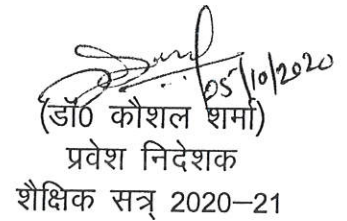 05/10/2020
(डॉ0 कौशल शर्मा)
प्रवेश निदेशक
शैक्षिक सत्र् 2020–21